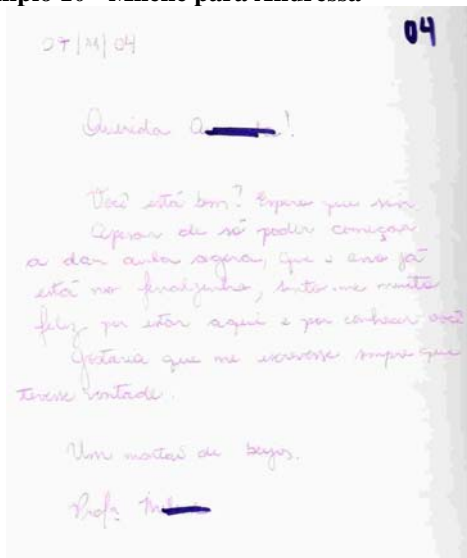 04
07/11/04
Querida A
Você está bem? Espero que sim
Apesar de só poder começar
a dar aula agora, que o ano já
está no finalzinho, sinto-me muito
feliz por estar aqui e por conhecer você
Gostaria que me escrevesse sempre que
tivesse vontade.
Um montão de beijos.
Profª